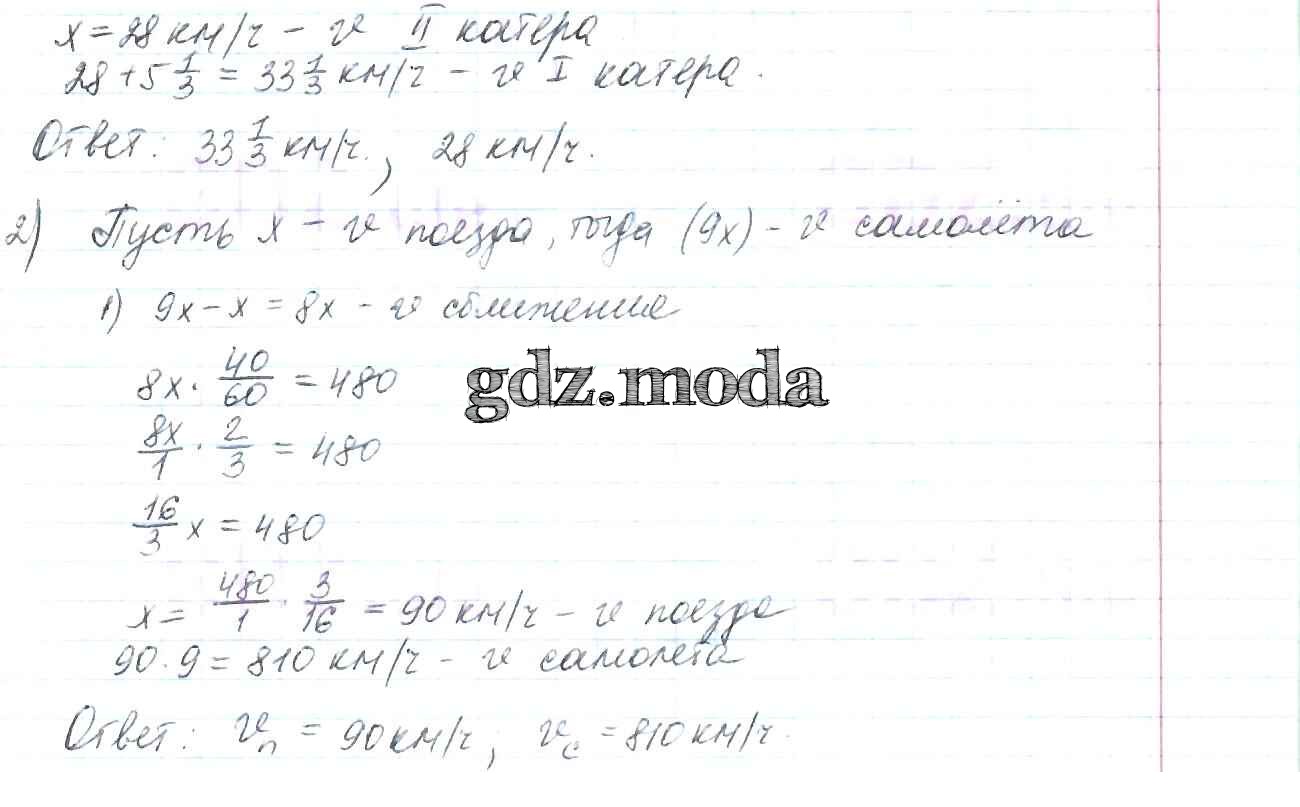 x = 28 км/ч – v II катера
28 + 5 1/3 = 33 1/3 км/ч – v I катера.
Ответ: 33 1/3 км/ч., 28 км/ч.
2) Пусть x – v поезда, тогда (9x) – v самолёта
1) 9x – x = 8x – v сближения
8x · 40/60 = 480
gdz.moda
8x/1 · 2/3 = 480
16/3 x = 480
x = 480/1 · 3/16 = 90 км/ч – v поезда
90 · 9 = 810 км/ч – v самолета
Ответ: vп = 90 км/ч, vс = 810 км/ч.